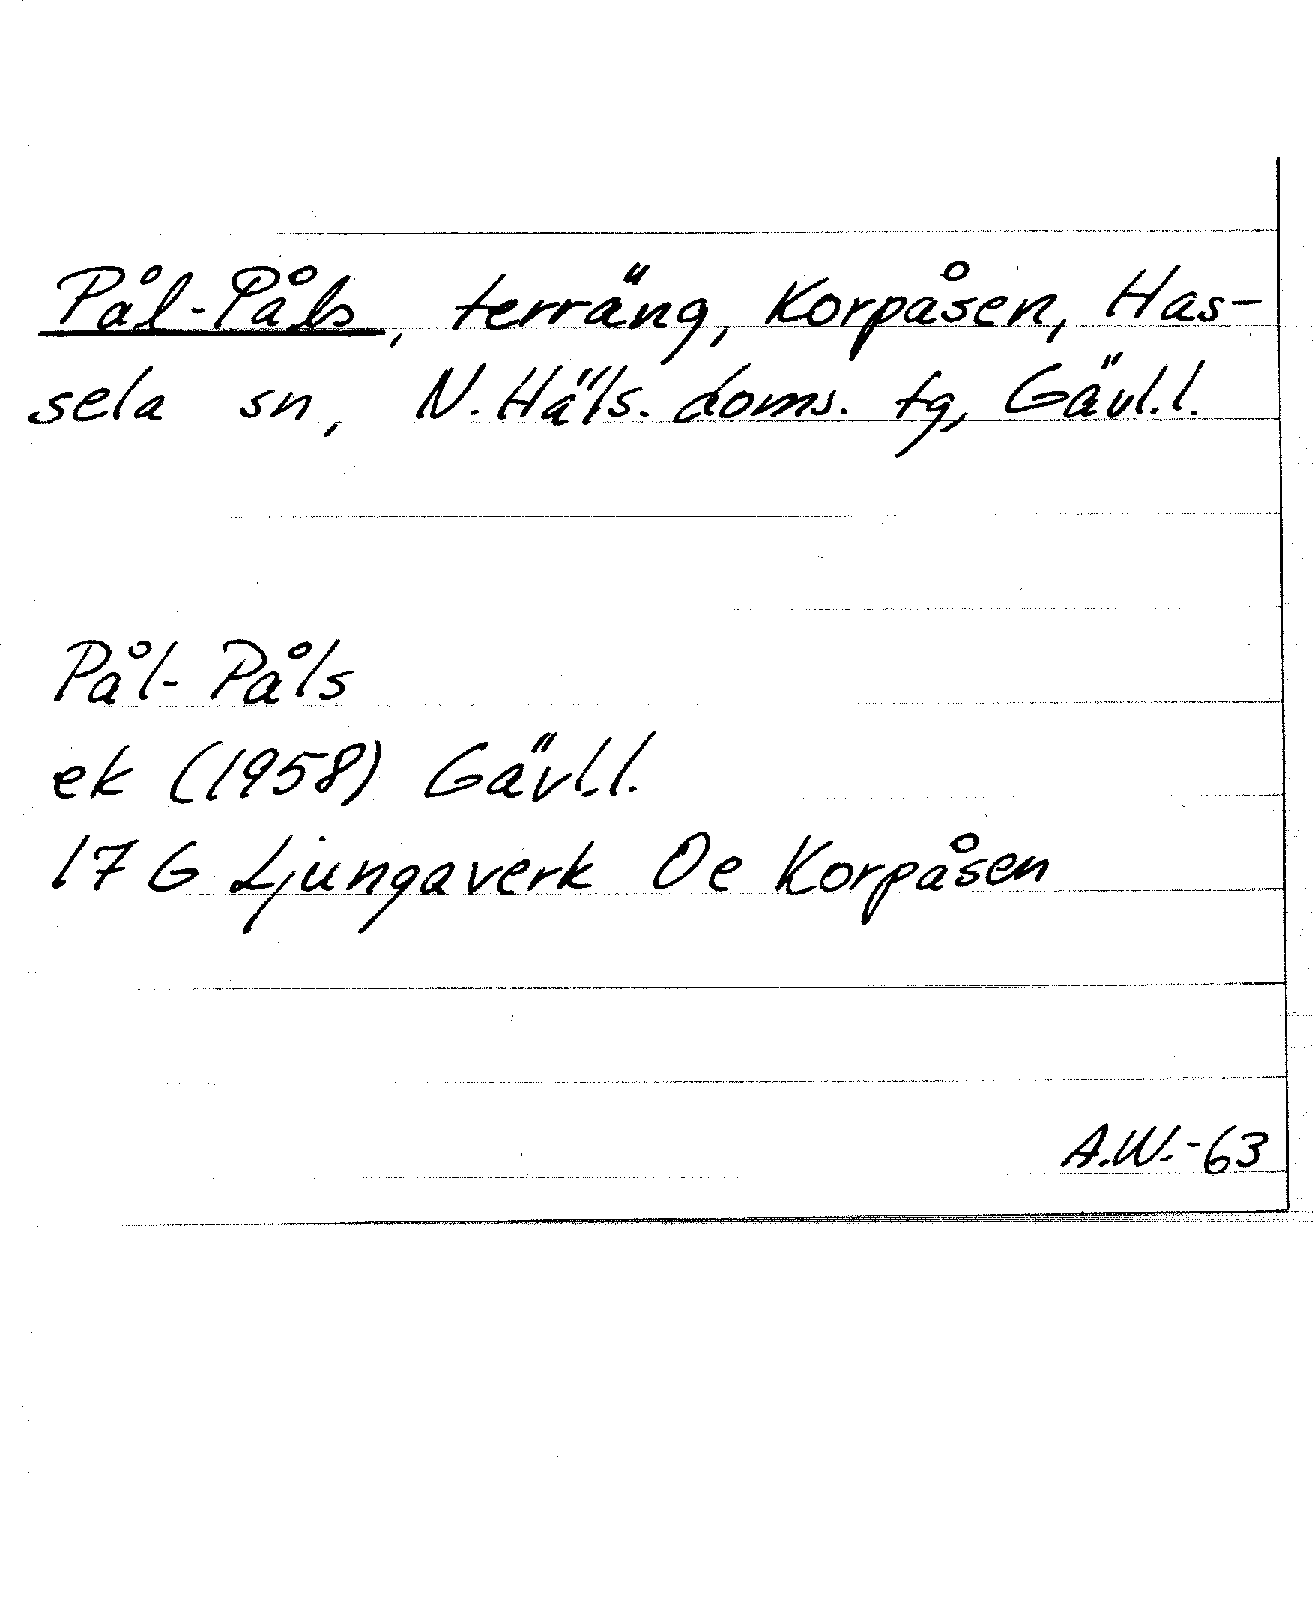 Pål-Påls, terräng, Korpåsen, Has-
sela sn, N. Häls. doms. tg, Gävl.l.
Pål-Påls
ek (1958) Gävl.l.
17 G Ljungaverk 0e Korpåsen
A.W.-63